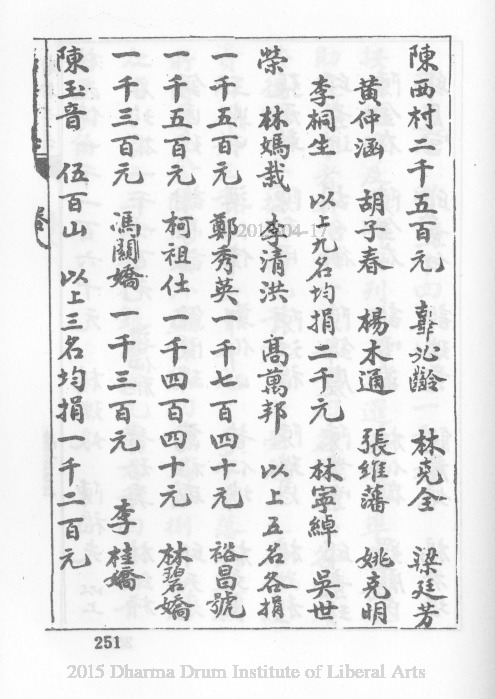 陳西村二千五百元 辜沁齡 林克全 梁廷芳
黃仲涵 胡子春 楊木通 張維藩 姚克明
李桐生 以上九名均捐二千元 林寧綽 吳世
榮 林媽栽 李清洪 高萬邦 以上五名各捐
一千五百元 鄭秀英一千七百四十元 裕昌號
一千五百元 柯祖仕一千四百四十元 林碧嬌
一千三百元 馮關嬌一千三百元 李桂嬌
陳玉音 伍百山 以上三名均捐一千二百元
251
2015-04-17
2015 Dharma Drum Institute of Liberal Arts